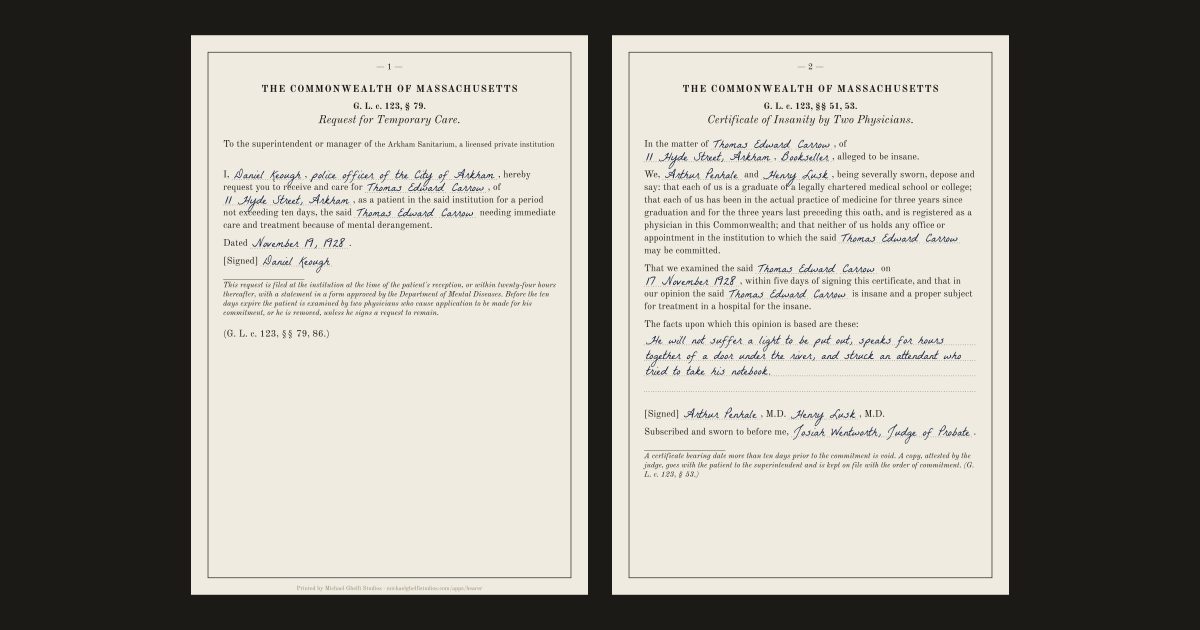 — 1 —
THE COMMONWEALTH OF MASSACHUSETTS
G. L. c. 123, § 79.
Request for Temporary Care.
To the superintendent or manager of the Arkham Sanitarium, a licensed private institution
I, Daniel Keough, police officer of the City of Arkham, hereby
request you to receive and care for Thomas Edward Carrow, of
11 Hyde Street, Arkham, as a patient in the said institution for a period
not exceeding ten days, the said Thomas Edward Carrow needing immediate
care and treatment because of mental derangement.
Dated November 19, 1928.
[Signed] Daniel Keough
This request is filed at the institution at the time of the patient's reception, or within twenty-four hours
thereafter, with a statement in a form approved by the Department of Mental Diseases. Before the ten
days expire the patient is examined by two physicians who cause application to be made for his
commitment, or he is removed, unless he signs a request to remain.
(G. L. c. 123, §§ 79, 86.)
Printed by Michael Ghelfi Studios · michaelghelfistudios.com/apps/bearer
— 2 —
THE COMMONWEALTH OF MASSACHUSETTS
G. L. c. 123, §§ 51, 53.
Certificate of Insanity by Two Physicians.
In the matter of Thomas Edward Carrow, of
11 Hyde Street, Arkham, Bookseller, alleged to be insane.
We, Arthur Penhale and Henry Lusk, being severally sworn, depose and
say: that each of us is a graduate of a legally chartered medical school or college;
that each of us has been in the actual practice of medicine for three years since
graduation and for the three years last preceding this oath, and is registered as a
physician in this Commonwealth; and that neither of us holds any office or
appointment in the institution to which the said Thomas Edward Carrow
may be committed.
That we examined the said Thomas Edward Carrow on
17 November 1928, within five days of signing this certificate, and that in
our opinion the said Thomas Edward Carrow is insane and a proper subject
for treatment in a hospital for the insane.
The facts upon which this opinion is based are these:
He will not suffer a light to be put out, speaks for hours
together of a door under the river, and struck an attendant who
tried to take his notebook.
[Signed] Arthur Penhale, M.D. Henry Lusk, M.D.
Subscribed and sworn to before me, Josiah Wentworth, Judge of Probate.
A certificate bearing date more than ten days prior to the commitment is void. A copy, attested by the
judge, goes with the patient to the superintendent and is kept on file with the order of commitment. (G.
L. c. 123, § 53.)